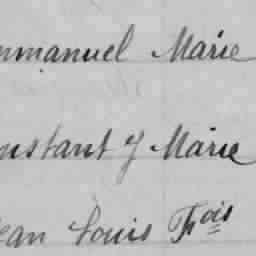 mmanuel Marie
nstant J Marie
ean Louis Fçois